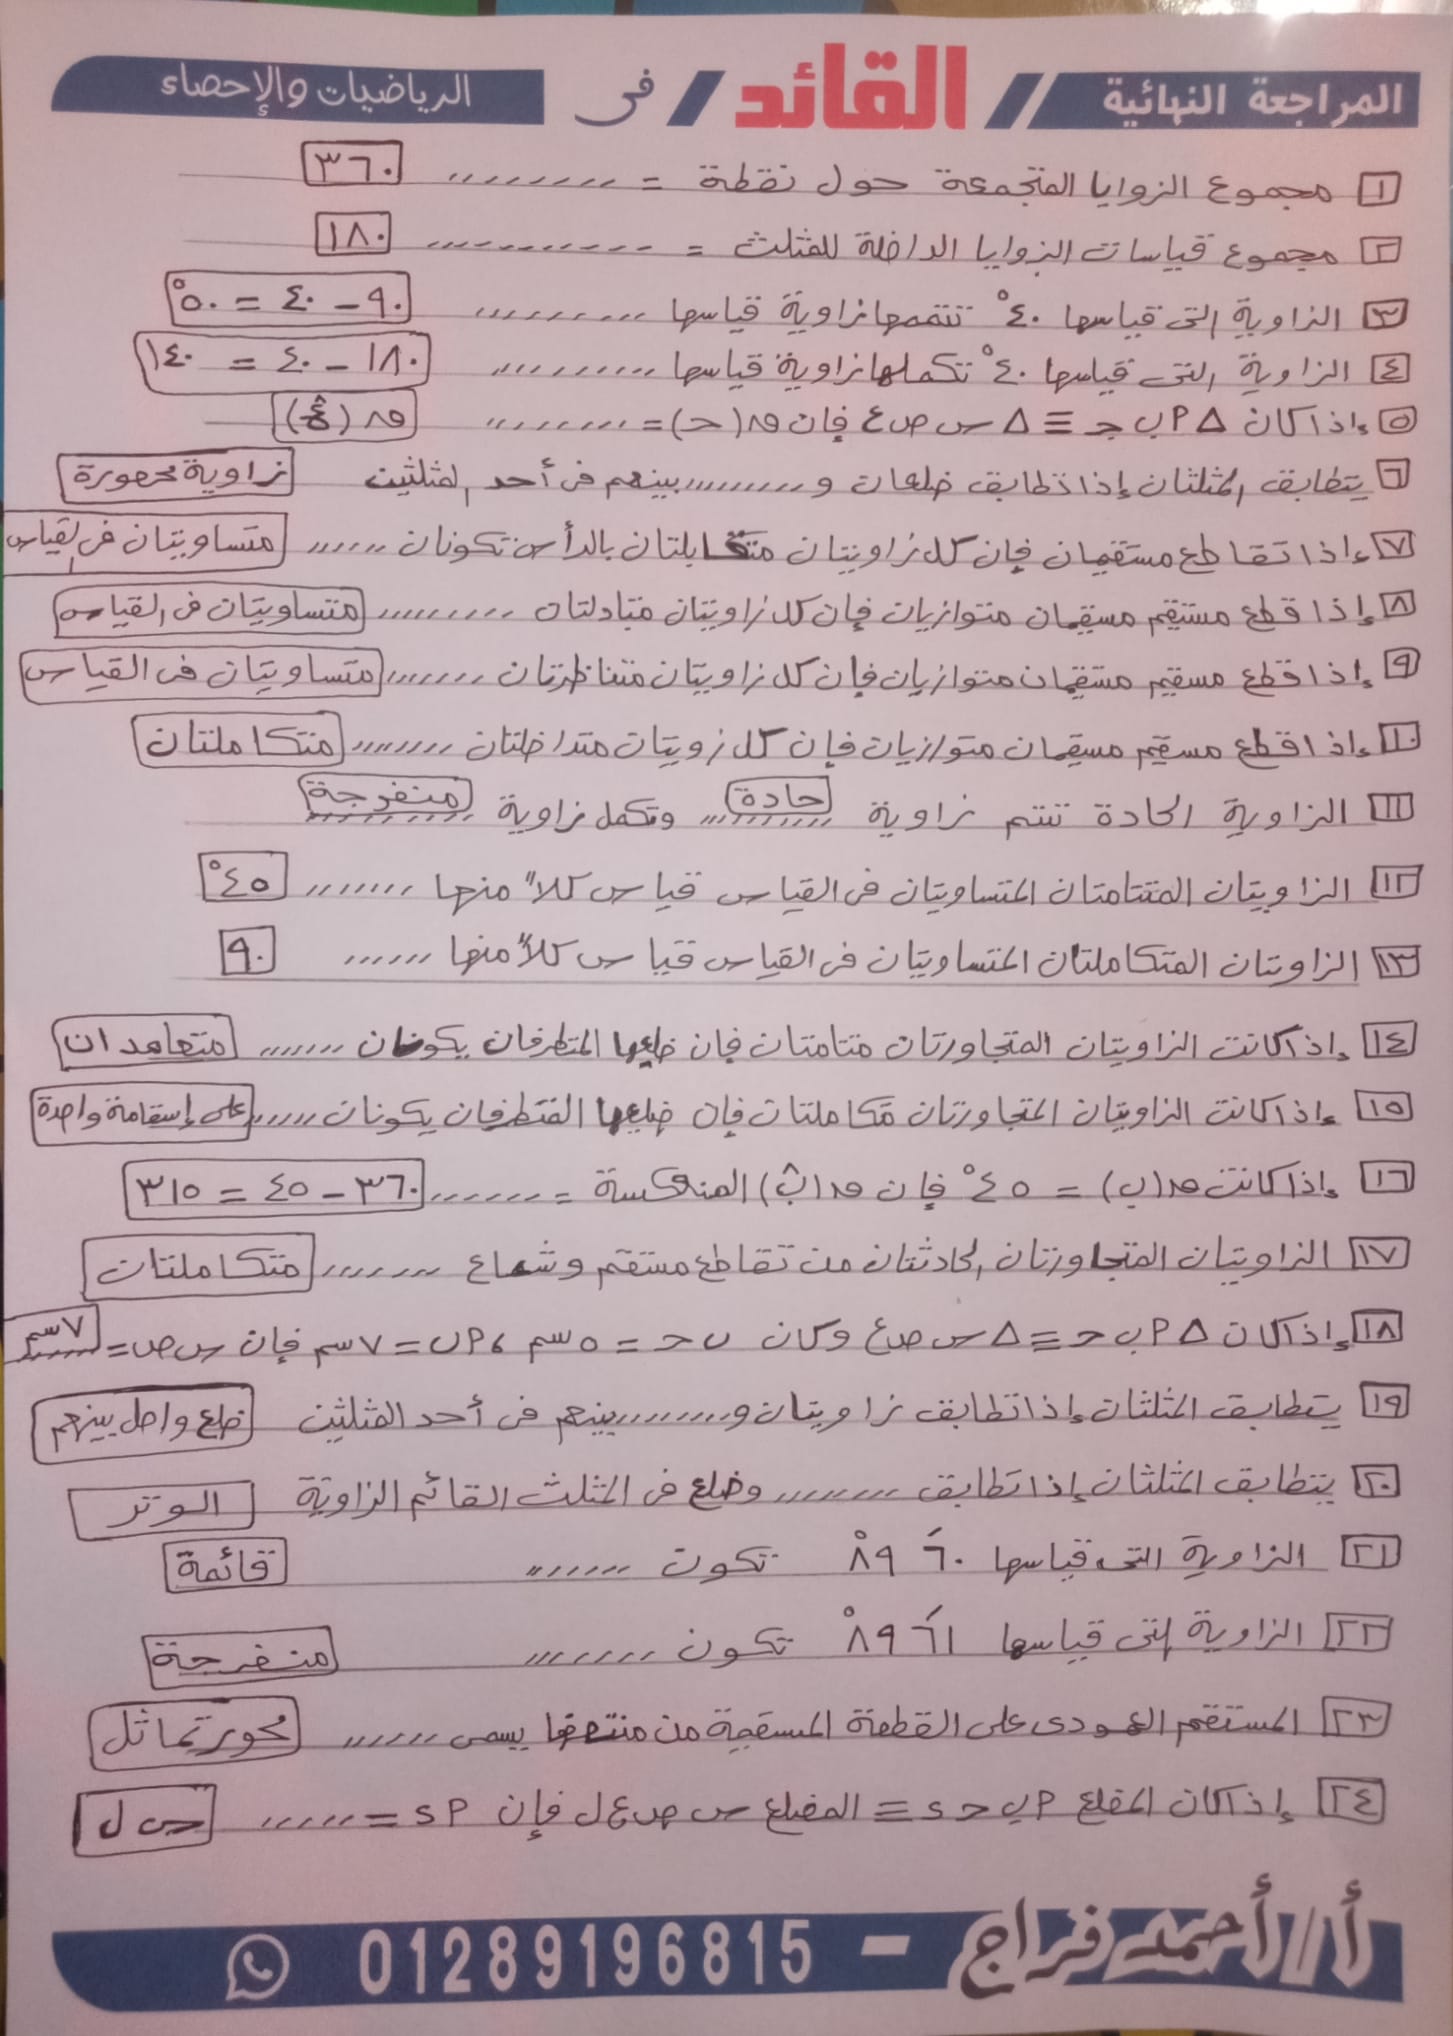 المراجعة النهائية // القائد / فى الرياضيات والإحصاء
١ مجموع الزوايا المتجمعة حول نقطة = ........ ٣٦٠
٢ مجموع قياسات الزوايا الداخلة للمثلث = ........ ١٨٠
٣ الزاوية التى قياسها ٤٠° تتممها زاوية قياسها ........ ٩٠ - ٤٠ = ٥٠°
٤ الزاوية التى قياسها ٤٠° تكملها زاوية قياسها ........ ١٨٠ - ٤٠ = ١٤٠
٥ إذا كان △ P ب جـ ≡ △ س ص ع فإن ق(حـ) = ........ ق(ع)
٦ يتطابق المثلثان إذا تطابق ضلعان و ........ بينهم فى أحد المثلثين زاوية محصورة
٧ إذا تقاطع مستقيمان فإن كل زاويتان متقابلتان بالرأس تكونان ...... متساويتان فى القياس
٨ إذا قطع مستقيم مسقيمان متوازيان فإن كل زاويتان متبادلتان ........ متساويتان فى القياس
٩ إذا قطع مسقيم مستقيمان متوازيان فإن كل زاويتان متناظرتان ....... متساويتان فى القياس
١٠ إذا قطع مسقيم مسقيمان متوازيان فإن كل زويتان متداخلتان ........ متكاملتان
١١ الزاوية الحادة تتم زاوية حادة ........ وتكمل زاوية منفرجة ........
١٢ الزاويتان المتتامتان المتساويتان فى القياس قياس كلاً منها ....... ٤٥°
١٣ الزاوتان المتكاملتان المتساويتان فى القياس قياس كلاً منها ...... ٩٠
١٤ إذا كانت الزاويتان المتجاورتان متتامتان فإن ضلعيها المتطرفان يكونان ....... متعامدان
١٥ إذا كانت الزاويتان المتجاورتان متكاملتان فإن ضلعيها المتطرفان يكونان ...... على إستقامة واحدة
١٦ إذا كانت ق(ب) = ٤٥° فإن ق(ب) المنعكسة = ....... ٣٦٠ - ٤٥ = ٣١٥
١٧ الزاويتان المتجاورتان الحادثتان من تقاطع مستقم وشعاع ....... متكاملتان
١٨ إذا كان △ P ب حـ ≡ △ س ص ع وكان ب حـ = ٥ سم ، P ب = ٧ سم فإن س ص = ٧ سم ......
١٩ يتطابق المثلثان إذا تطابق زاويتان و ........ بينهم فى أحد المثلثين ضلع واحل بينهم
٢٠ يتطابق المثلثان إذا تطابق ........ وضلع فى المثلث القائم الزاوية الوتر
٢١ الزاوية التى قياسها ٦٠َ ٨٩° تكون ...... قائمة
٢٢ الزاوية التى قياسها ٦١َ ٨٩° تكون ....... منفرجة
٢٣ المستقيم العمودى على القطعة المسقيمة من منتصفها يسمى ...... محور تماثل
٢٤ إذا كان المضلع P ب حـ s ≡ المضلع س ص ع ل فإن s P = ...... س ل
أ//أحمد فراج - 01289196815